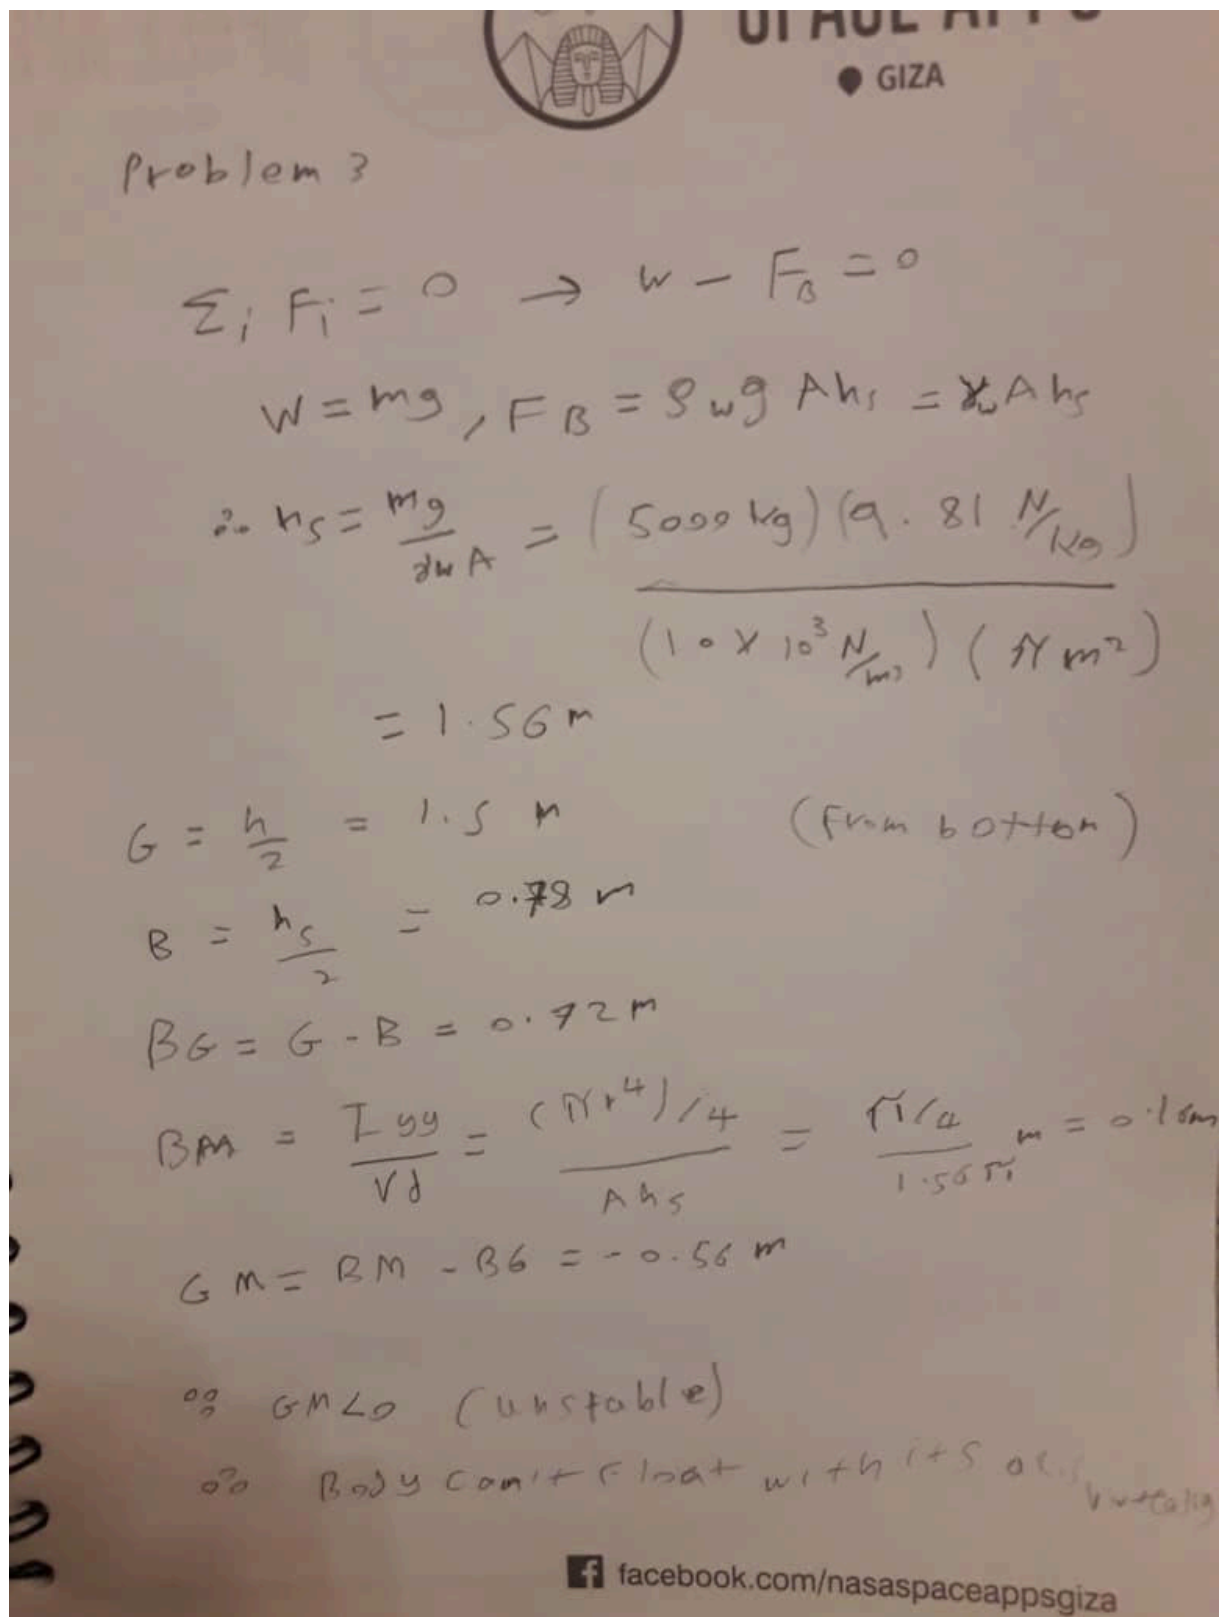 GIZA
Problem 3
Σi Fi = 0 → W - FB = 0
W = mg, FB = ρw g A hs = γw A hs
∴ hs = mg / γw A = (5000 kg) (9.81 N/kg) / (10 x 10³ N/m³) (π m²)
= 1.56 m
G = h/2 = 1.5 m (from bottom)
B = hs/2 = 0.78 m
BG = G - B = 0.72 m
BM = Iyy/Vd = (πr⁴)/4 / A hs = π/4 / 1.56π m = 0.16 m
GM = BM - BG = -0.56 m
∵ GM < 0 (unstable)
∴ Body can't float with its
facebook.com/nasaspaceappsgiza